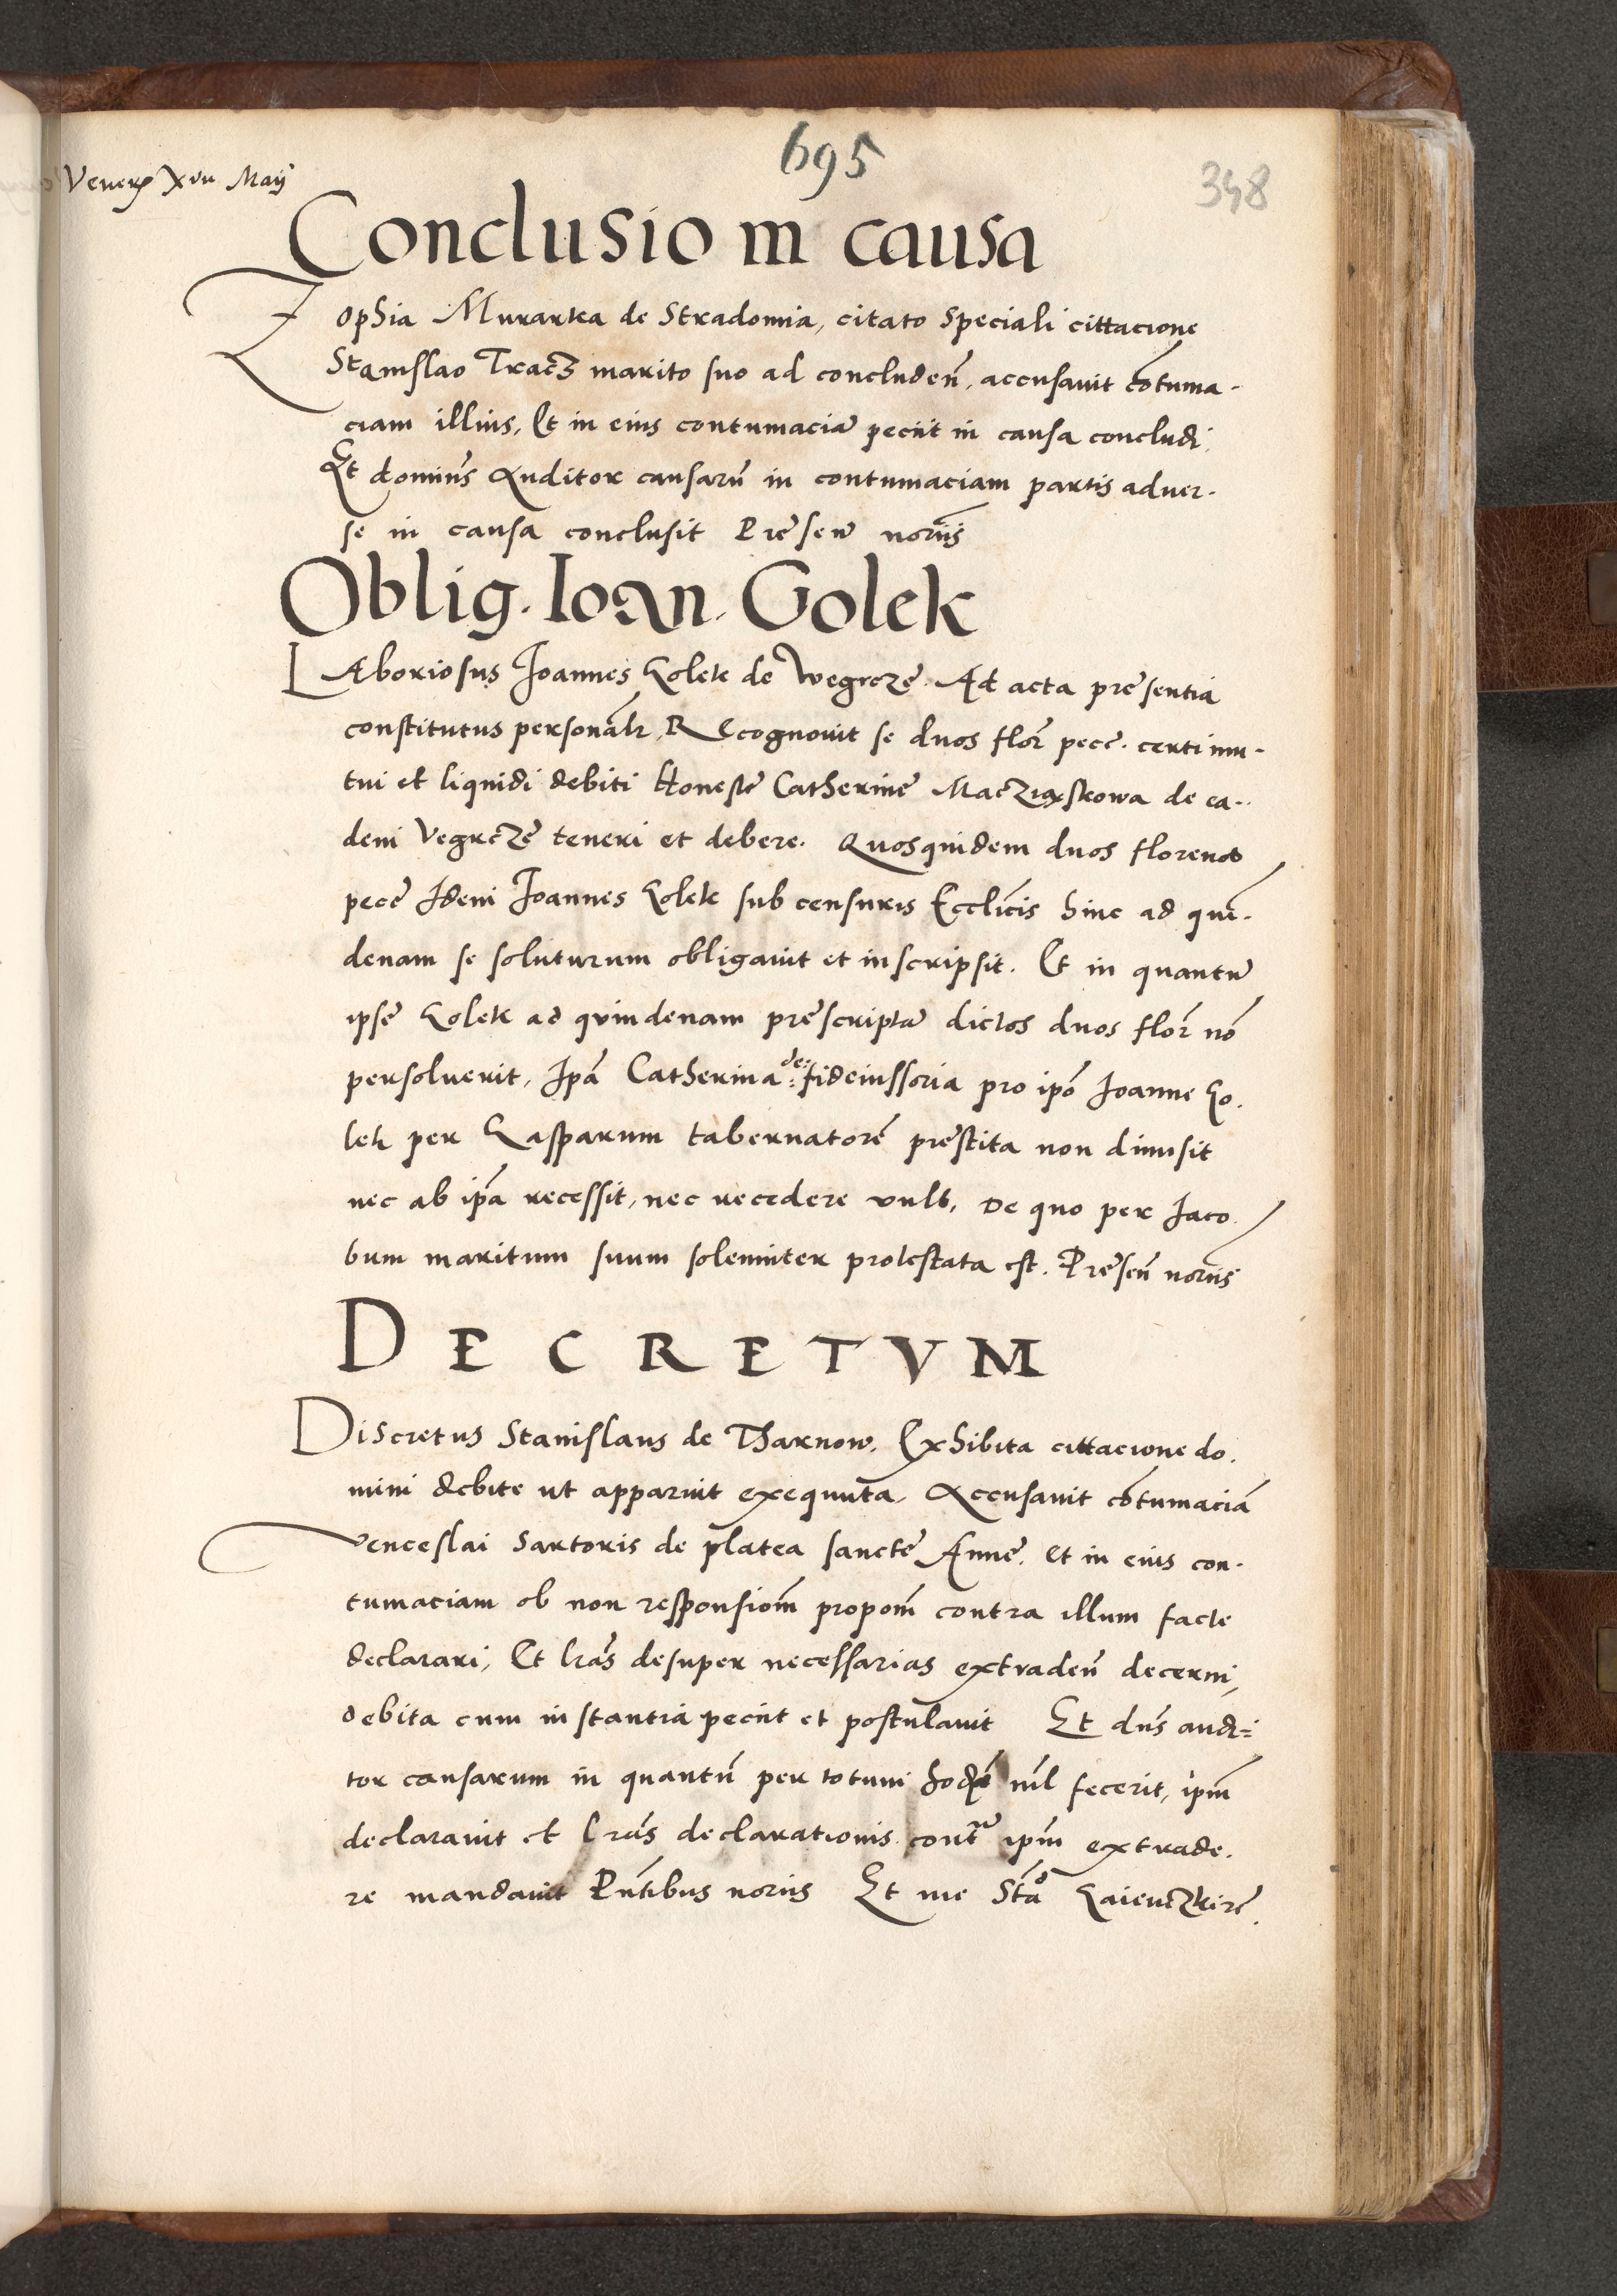 695
348
Veneris Xvii Maij
Conclusio in causa
Zophia Murarka de Stradomia, citato speciali cittacione
Stanislao Tracz marito suo ad concludeñ, accusavit cõtuma-
ciam illius, Et in eius contumaciã peciit in causa concludi.
Et dominus Auditor causarũ in contumaciam partis adver-
se in causa conclusit Presen noriis
Oblig. Ioan. Golek
Laboriosus Joannes Golek de Wegrcze. Ad acta presentia
constitutus personalr, Recognovit se duos flor pecc. certi mu-
tui et liquidi debiti Honeste Catherine Macziąskowa de ea-
dem Vegrcze teneri et debere. Quosquidem duos florenos
pecc Idem Joannes Golek sub censuris Ecclicis hinc ad quin-
denam se soluturum obligavit et inscripsit. Et in quantũ
ipse Golek ad quindenam prescriptã dictos duos flor nõ
persolverit, Ipã Catherina de fideiussoria pro ipõ Joanne Go-
lek per Gasparum tabernatorẽ prestita non dimisit
nec ab ipã recessit, nec recedere vult, De quo per Jaco-
bum maritum suum solemniter protestata est. Preseñ noriis
DECRETVM
Discretus Stanislaus de Tharnow. Exhibita cittacione do-
mini debite ut apparuit exequuta, Accusavit cõtumaciã
Venceslai Sartoris de platea sancte Anne. et in eius con-
tumaciam ob non responsiom propom contra illum facte
declarari, Et lras desuper necessarias extradeñ decerni,
debita cum instantia peciit et postulavit Et dns audi-
tor causarum in quantũ per totum hodie nil fecerit, ipm
declaravit et lras declarationis contra ipm extrade-
re mandavit Pntibus noriis Et me Stão Gaieuczkire.